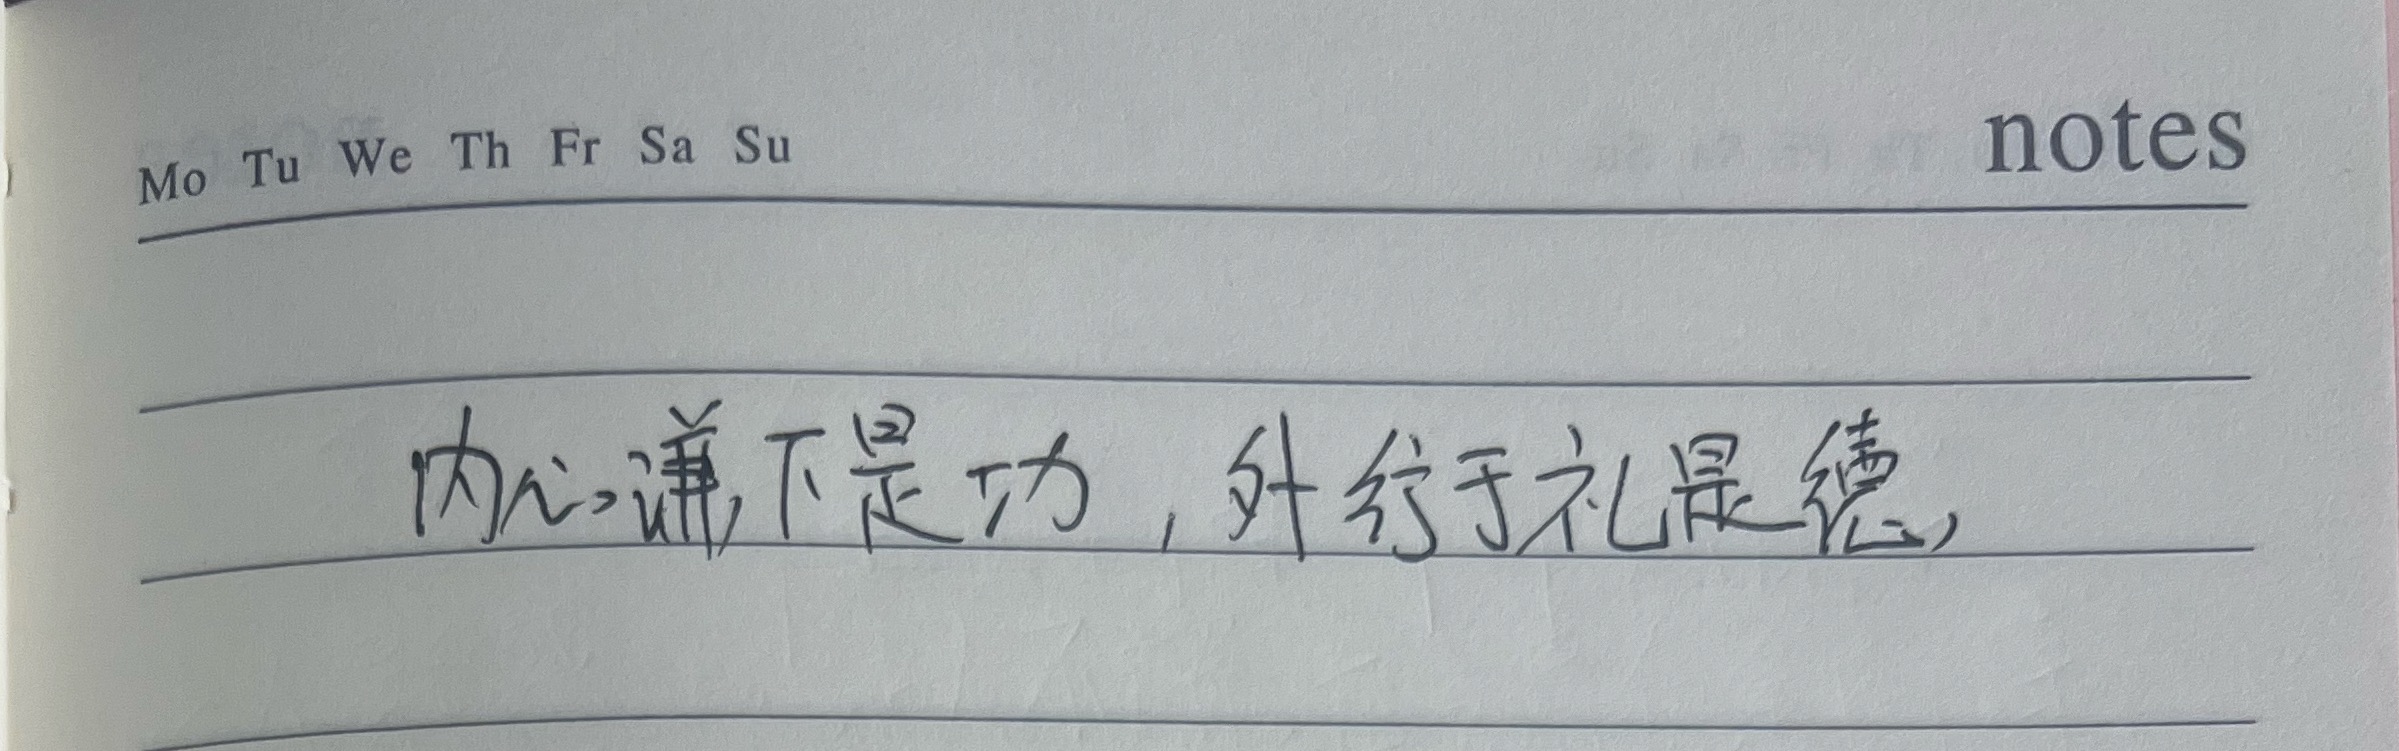 Mo Tu We Th Fr Sa Su notes
内心谦下是功，外行于礼是德，